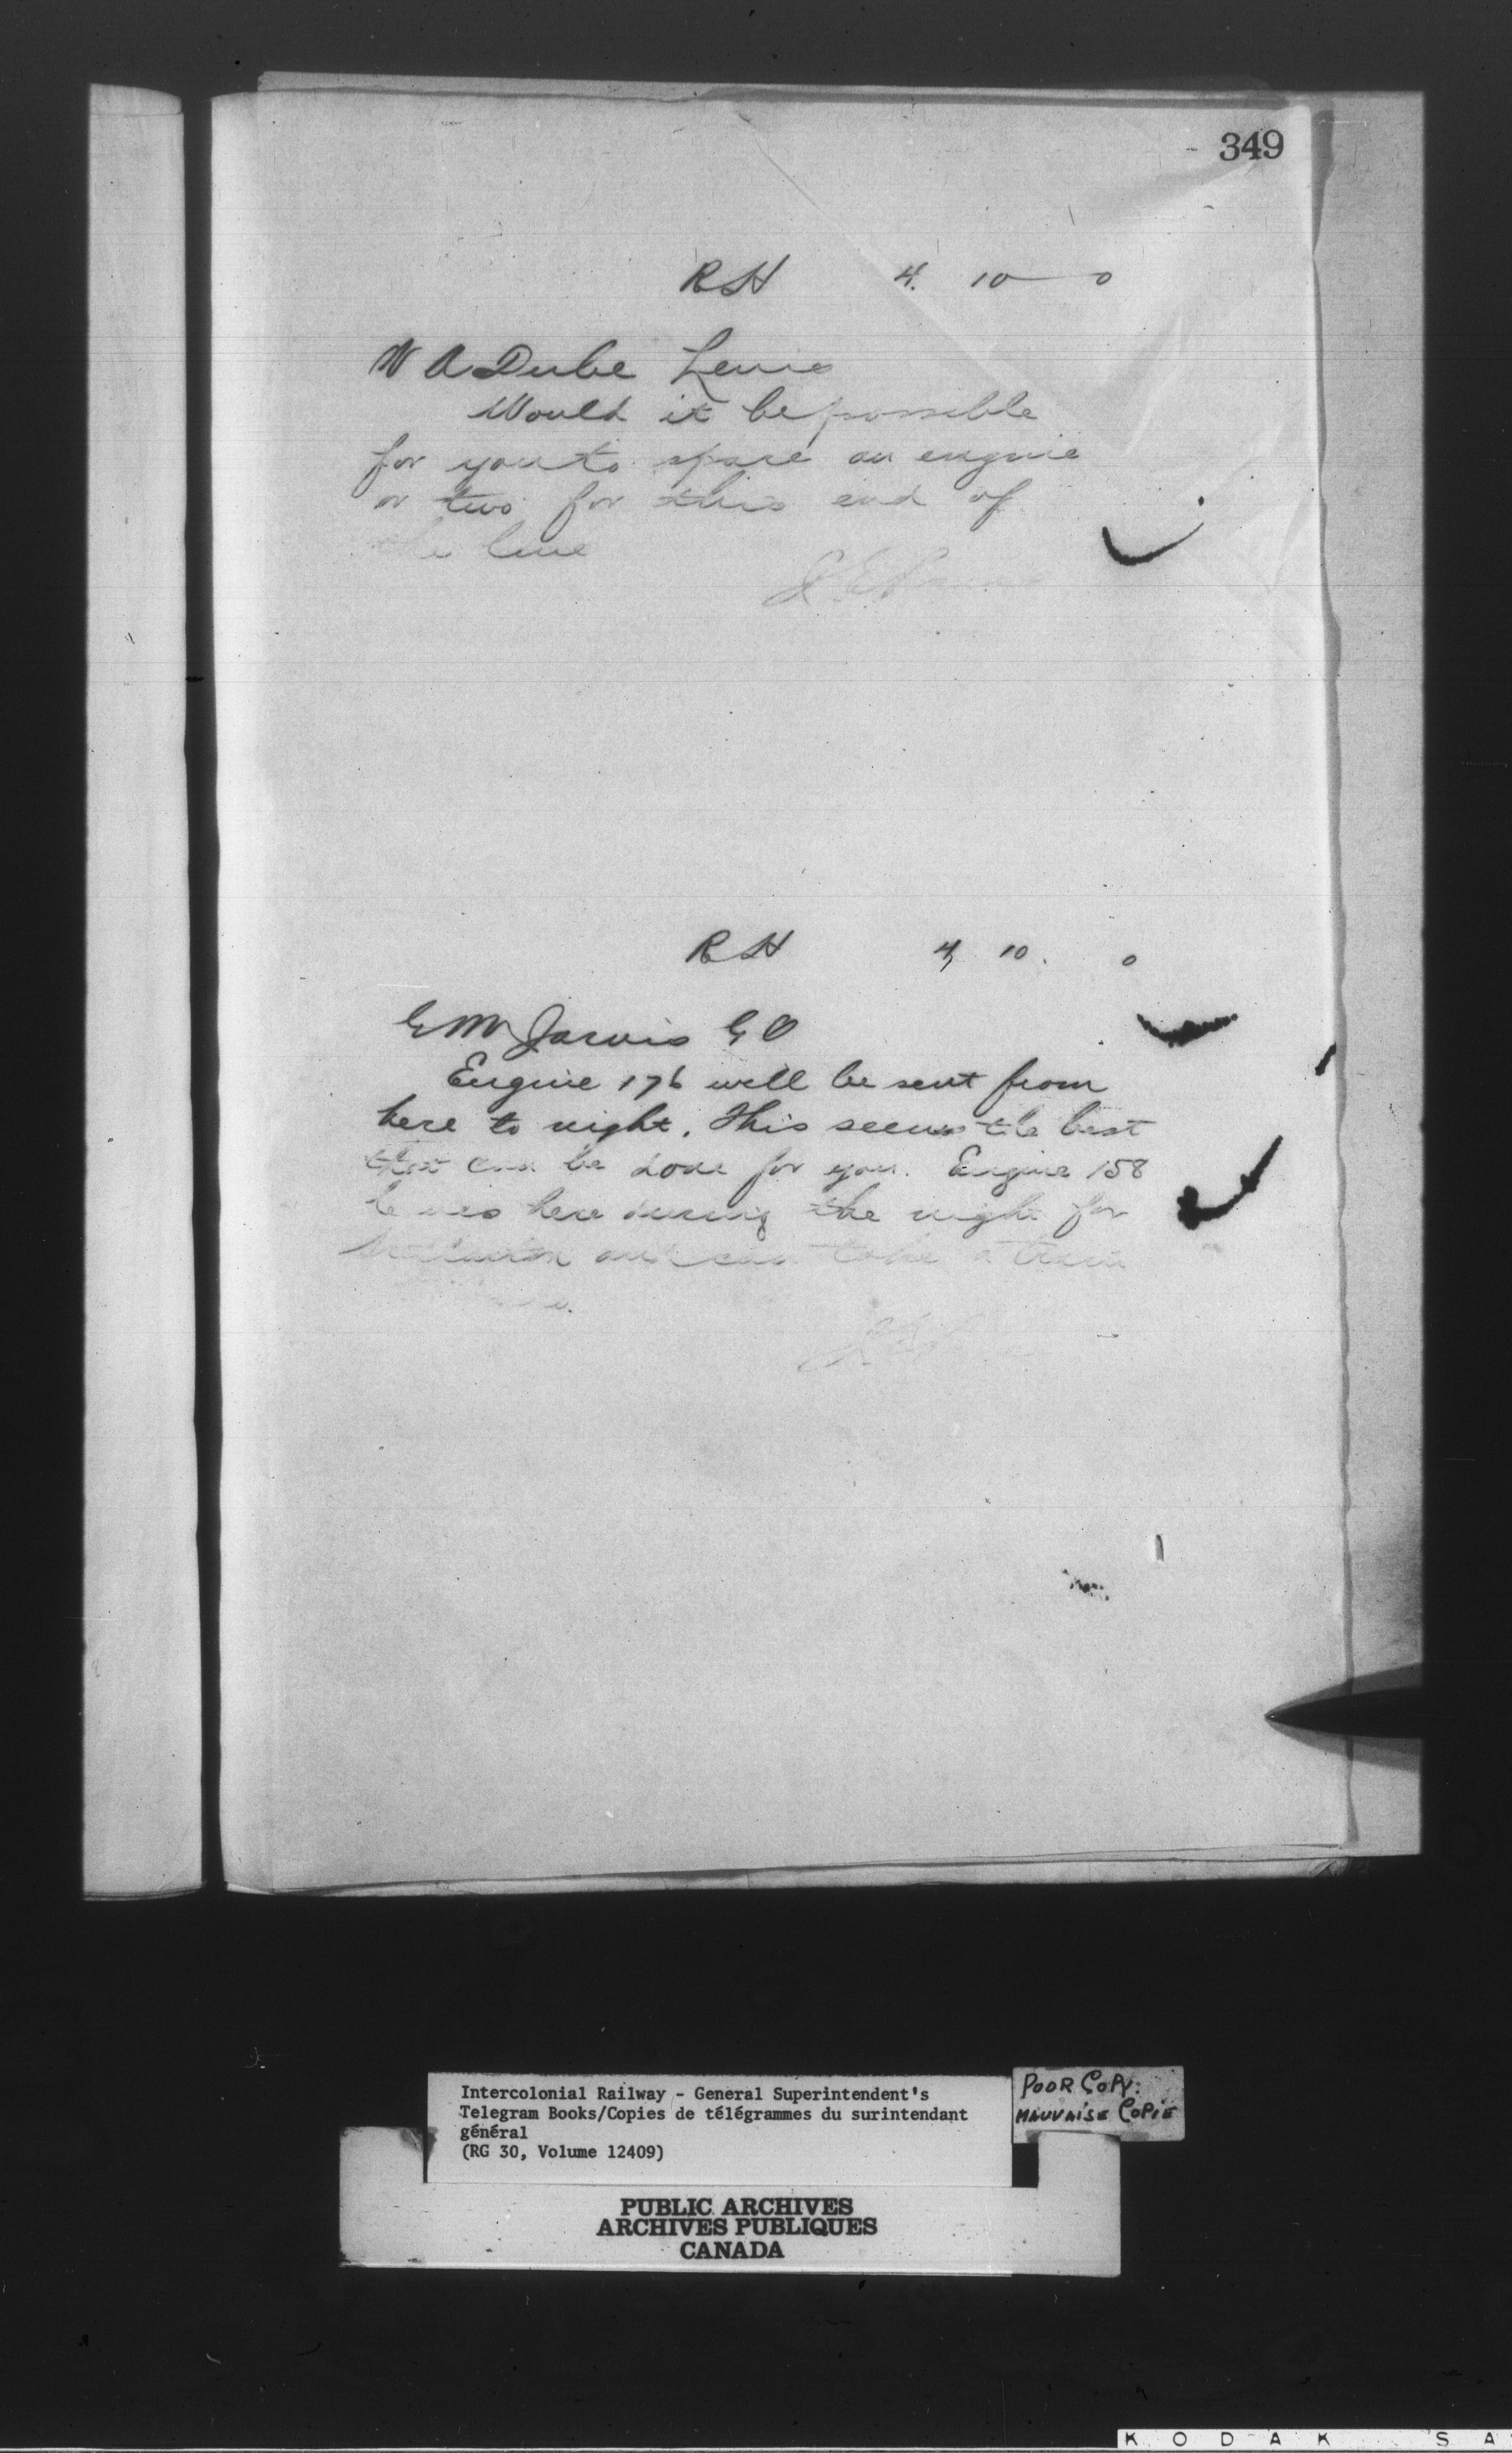 349
RH 4. 10 0
W A Dube Levis
Would it be possible
for you to spare an engine
or two for this end of
line
RH 4, 10. 0
G M Jarvis G O
Engine 176 will be sent from
here to night. This seems the best
that can be done for you. Engine 158
leaves here during the night for
and can take a train
Intercolonial Railway - General Superintendent's
Telegram Books/Copies de télégrammes du surintendant
général
(RG 30, Volume 12409)
POOR COPY:
MAUVAISE COPIE
PUBLIC ARCHIVES
ARCHIVES PUBLIQUES
CANADA
KODAK SA